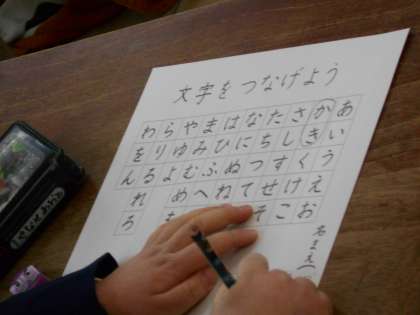 文字をつなげよう
あいうえお
かきくけこ
さしすせそ
たちつて
なにぬね
はひふへ
まみむめ
やゆよ
らりるれろ
わをん
名まえ(